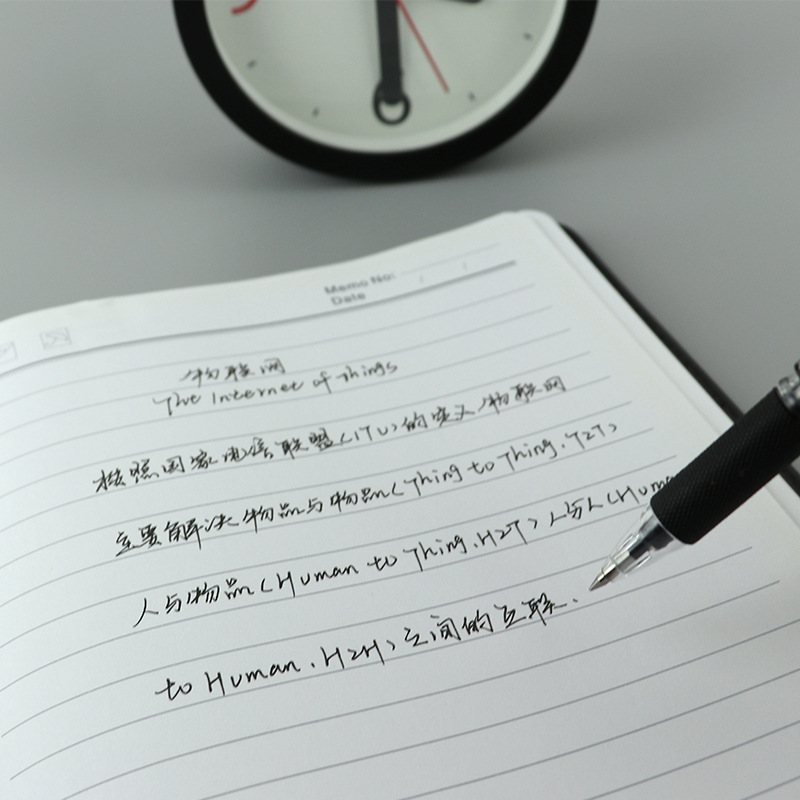 Memo No:
Date / /
物联网
The Internet of Things
根据国家电信联盟(ITU)的定义,物联网
主要解决物品与物品(Thing to Thing,T2T)
人与物品(Human to Thing,H2T)人与人(Huma
to Human,H2H)之间的互联.